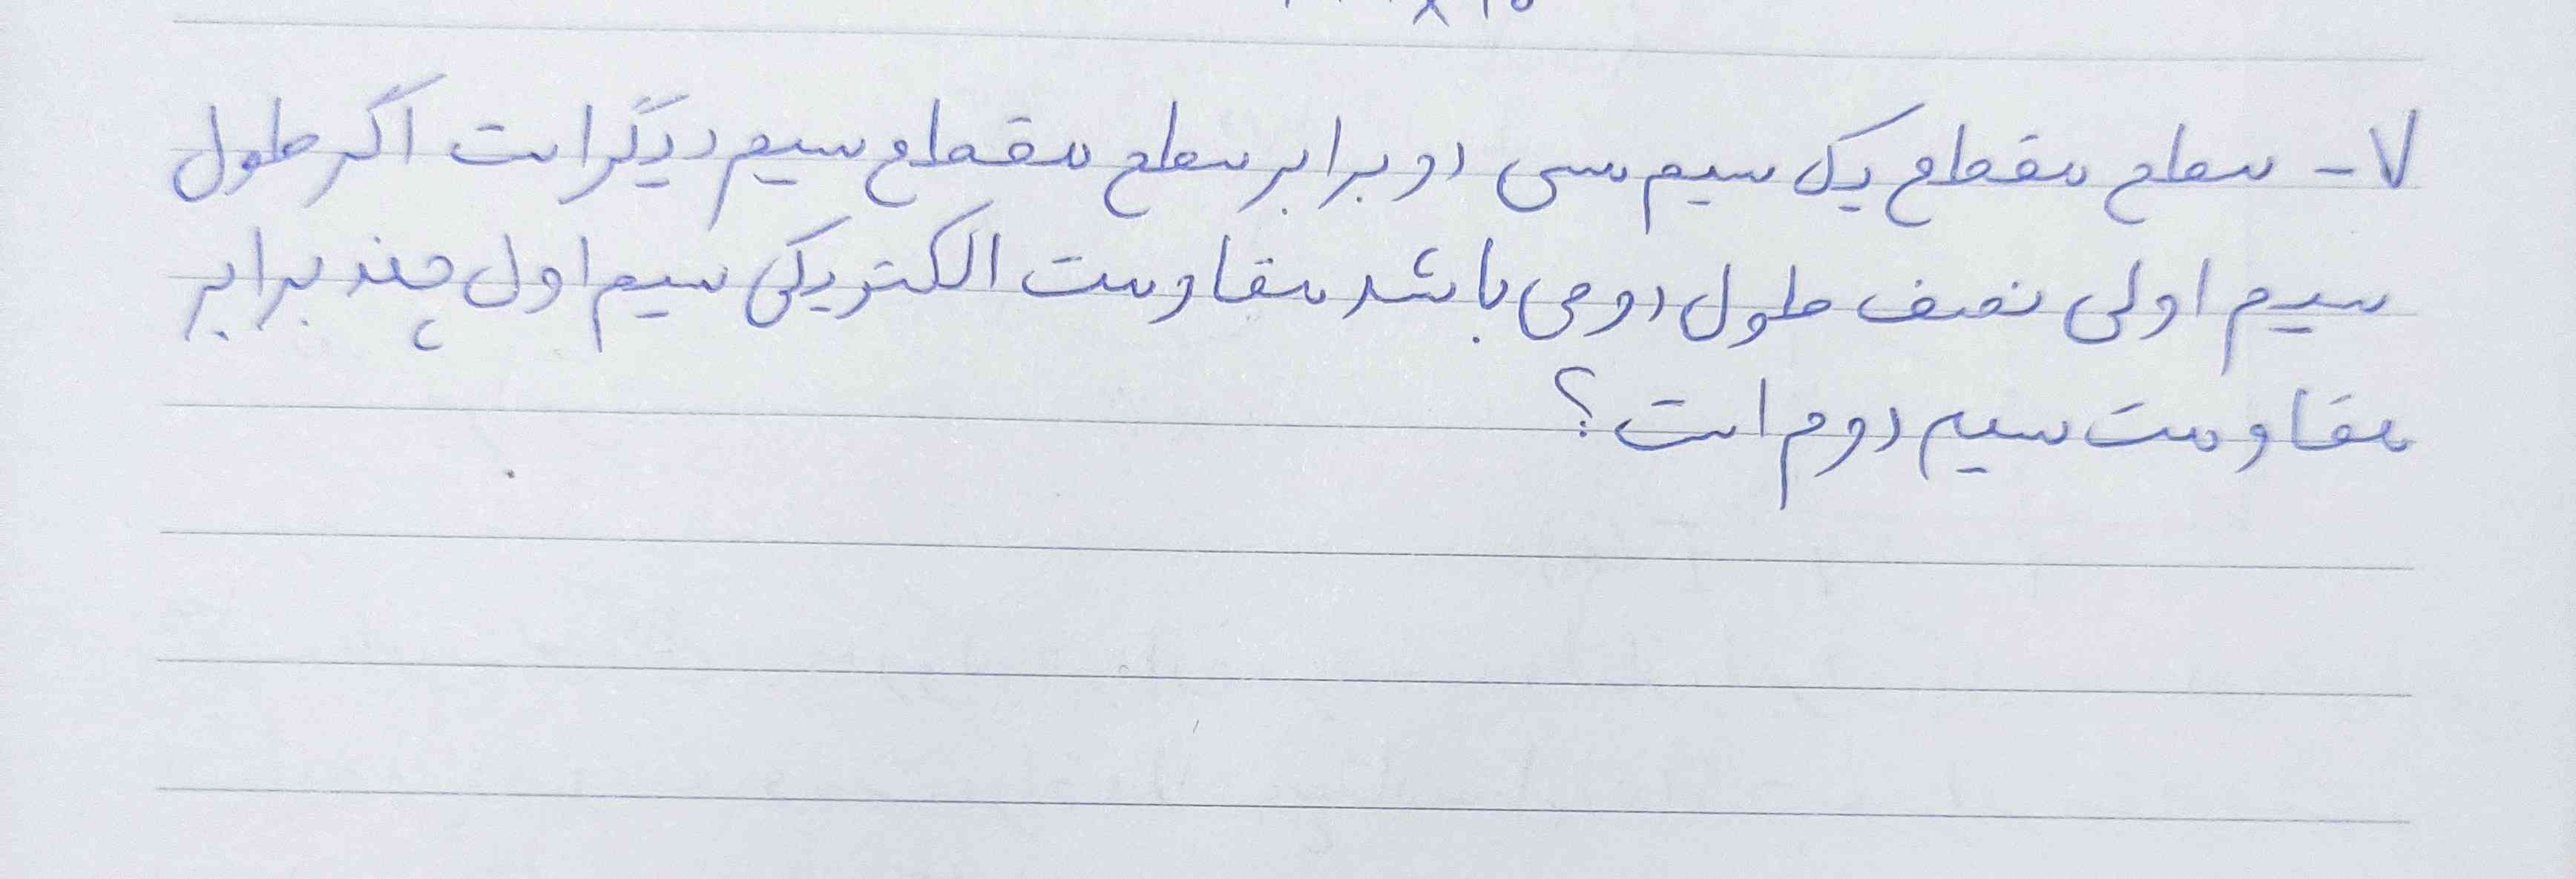 ۷- سطح مقطع یک سیم مسی دو برابر سطح مقطع سیم دیگر است اگر طول
سیم اولی نصف طول دومی باشد مقاومت الکتریکی سیم اول چند برابر
مقاومت سیم دوم است؟